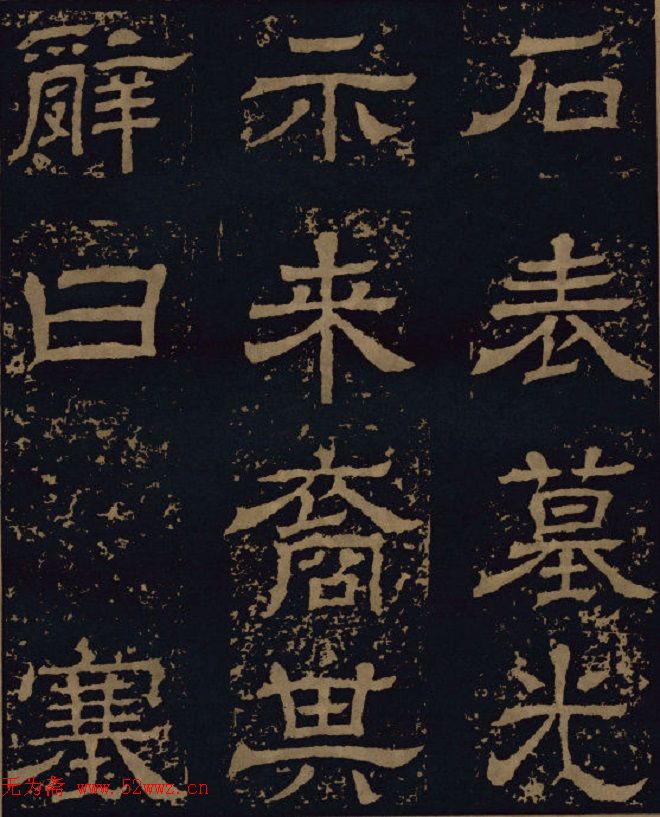 石表墓光
示来裔其
辭曰塞
无为斋 www.52wwz.cn